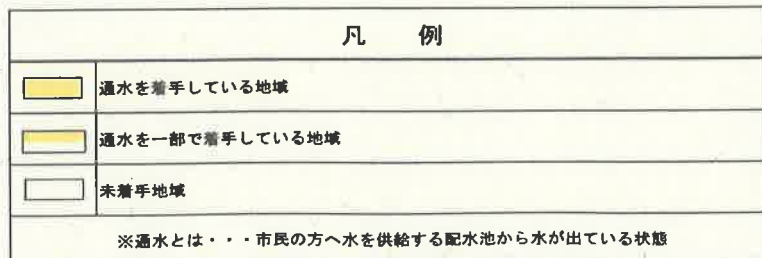 凡　例
通水を着手している地域
通水を一部で着手している地域
未着手地域
※通水とは・・・市民の方へ水を供給する配水池から水が出ている状態